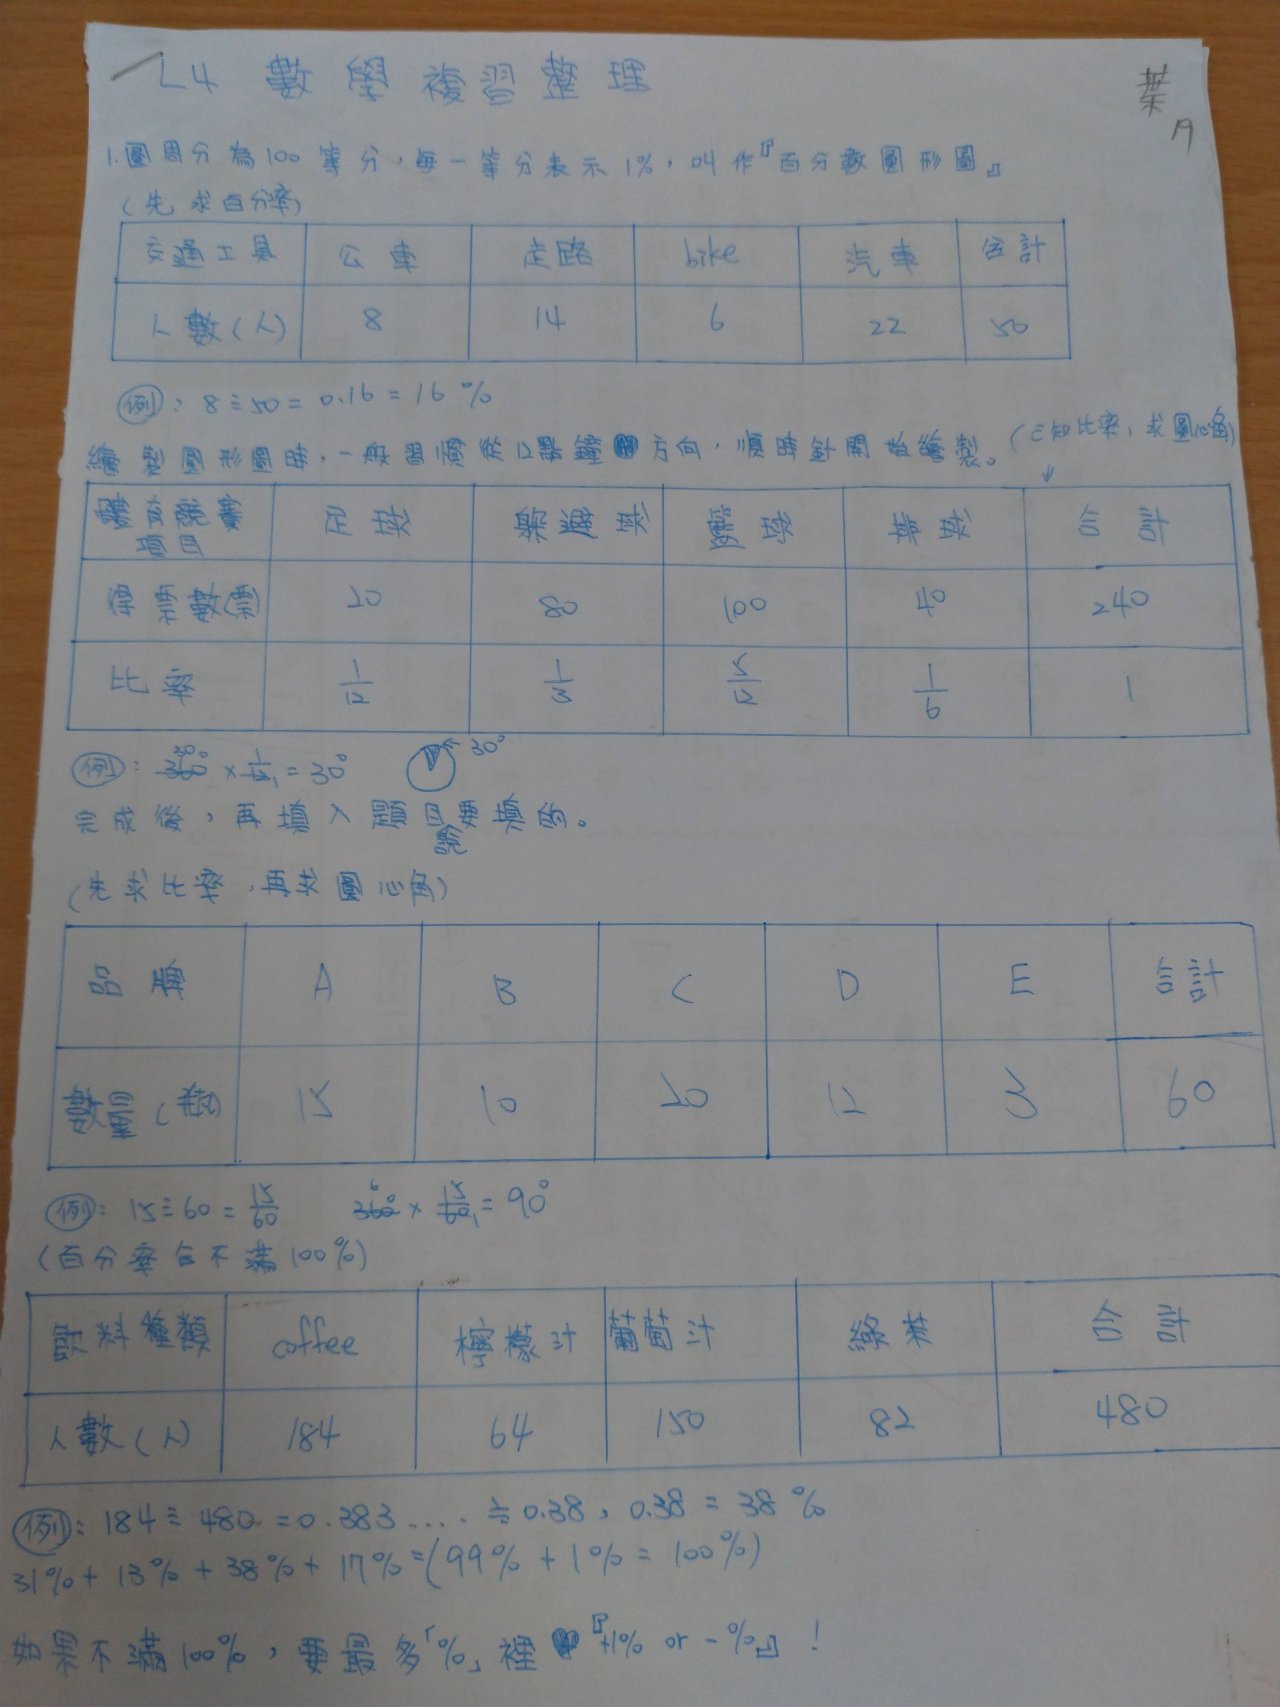 L4 數學複習整理
葉
19
1.圓周分為100等分，每一等分表示1%，叫作『百分數圓形圖』
(先求百分率)
交通工具 公車 走路 bike 汽車 合計
人數(人) 8 14 6 22 50
例：8÷50=0.16=16%
繪製圓形圖時，一般習慣從12點鐘方向，順時針開始繪製。(已知比率，求圓心角)
項目 合計
得票數(票) 20 80 100 40 240
比率 1/12 1/3 5/12 1/6 1
例：360°×1/12=30° 30°
完成後，再填入題目要填的。
(先求比率，再求圓心角)
品牌 A B C D E 合計
數量(瓶) 15 10 20 12 3 60
例：15÷60=15/60 360°×15/60=90°
(百分率合不滿100%)
飲料種類 coffee 檸檬汁 葡萄汁 綠茶 合計
人數(人) 184 64 150 82 480
例：184÷480=0.383....≒0.38，0.38=38%
31%+13%+38%+17%=(99%+1%=100%)
如果不滿100%，要最多「%」裡『+1% or -%』！